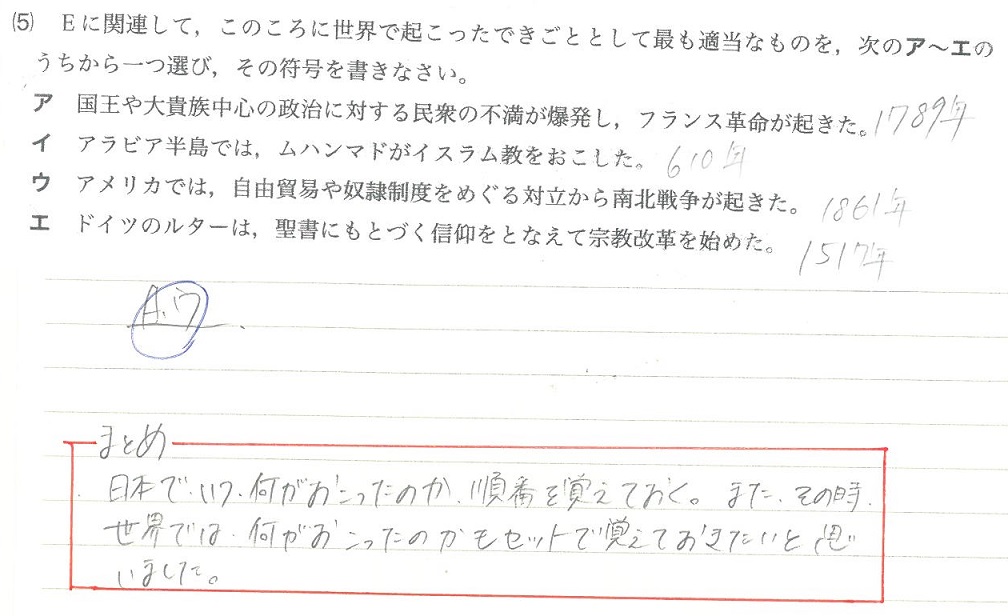 (5) Eに関連して，このころに世界で起こったできごととして最も適当なものを，次のア～エの
うちから一つ選び，その符号を書きなさい。
ア 国王や大貴族中心の政治に対する民衆の不満が爆発し，フランス革命が起きた。1789年
イ アラビア半島では，ムハンマドがイスラム教をおこした。610年
ウ アメリカでは，自由貿易や奴隷制度をめぐる対立から南北戦争が起きた。1861年
エ ドイツのルターは，聖書にもとづく信仰をとなえて宗教改革を始めた。1517年
A.ウ
まとめ
日本で、いつ、何がおこったのか、順番を覚えておく。また、その時、
世界では、何がおこったのかもセットで覚えておきたいと思
いました。